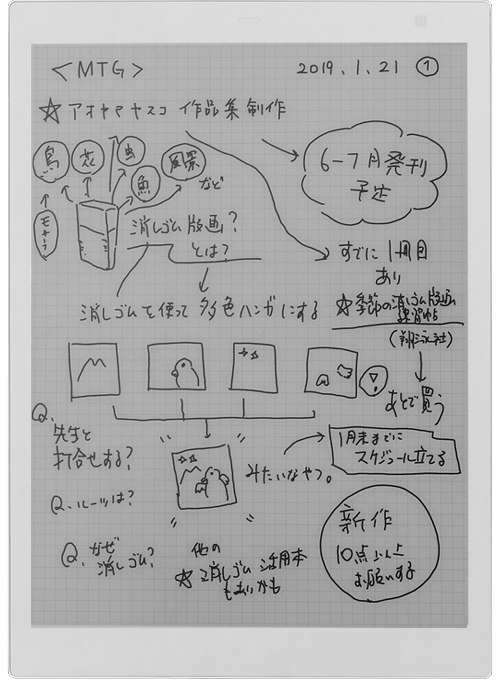 <MTG> 2019.1.21 ①
☆ アオヤマヤスコ 作品集制作
鳥
花
虫
魚
風景
など
モチーフ
6-7月発刊
予定
消しゴム版画?
とは?
すでに1冊目
あり
消しゴムを使って多色ハンガにする
☆季節の消しゴム版画
練習帖
(翔泳社)
あとで買う
Q.
先生と
打合せする?
1月末までに
スケジュール立てる
みたいなやつ。
Q.ルーツは?
Q.なぜ
消しゴム?
他の
☆消しゴム活用本
もあいかも
新作
10点以上
お願いする